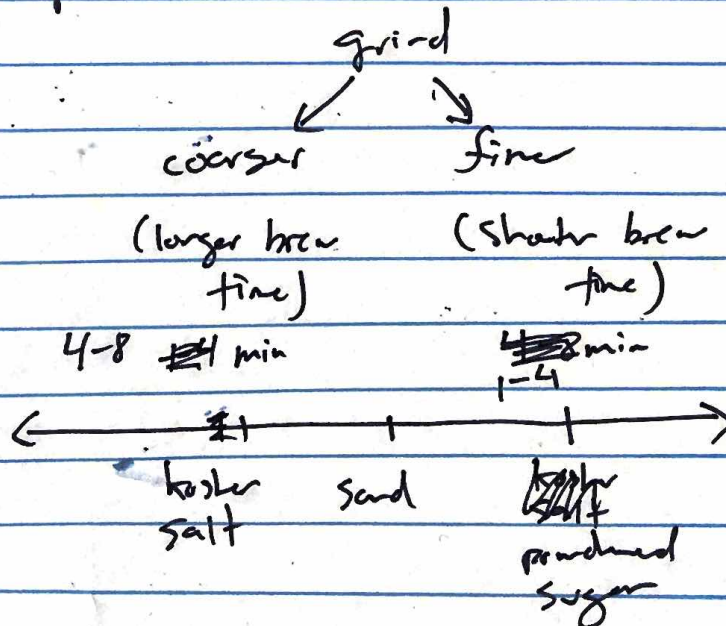 grind
coarser fine
(longer brew (shorter brew
time) time)
4-8 min min
1-4
kosher sand
salt
powdered
sugar